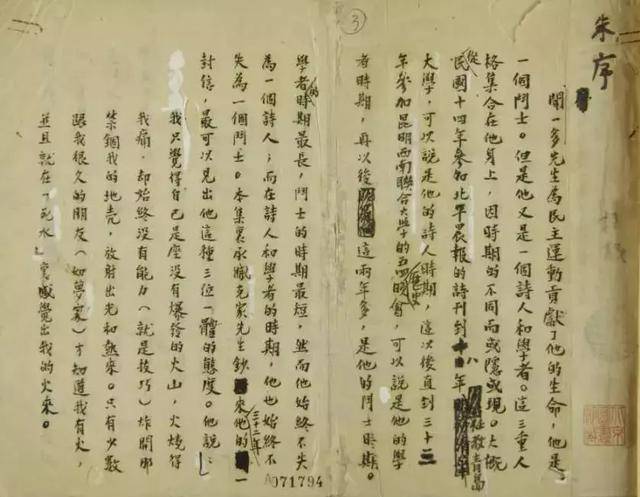 ③
朱序
聞一多先生為民主運動貢獻了他的生命，他是
一個鬥士。但是他又是一個詩人和學者。這三重人
格集合在他身上，因時期的不同而或隱或現。大概
從民國十四年參加北平晨報的詩刊到十八年任教青島
大學，可以說是他的詩人時期，這以後直到三十三
年參加昆明西南聯合大學的五四歷史晚會，可以說是他的學
者時期，再以後這兩年多，是他的鬥士時期。
學者的時期最長，鬥士的時期最短，然而他始終不失
為一個詩人；而在詩人和學者的時期，他也始終不
失為一個鬥士。本集裏承臧克家先生鈔來他的三十二年一
封信，最可以見出他這種三位一體的態度。他說：
我只覺得自己是座沒有爆發的火山，火燒得
我痛，却始終沒有能力（就是技巧）炸開那
禁錮我的地壳，放射出光和熱來。只有少數
跟我很久的朋友（如夢家）才知道我有火，
並且就在「死水」裏感覺出我的火來。
A071794